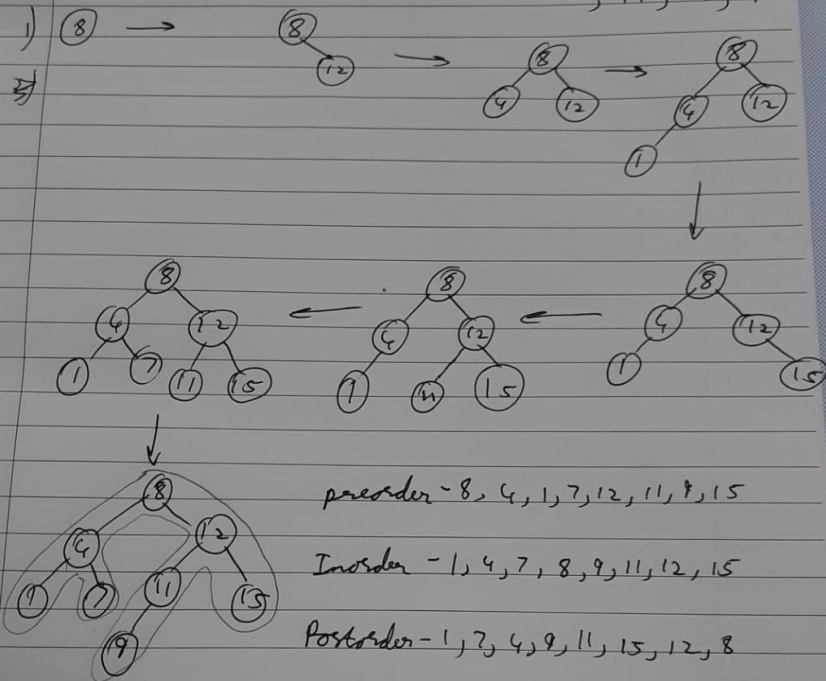 1) 8 → 8 12 → 8 4 12 → 8 4 12 1
8 4 12 1 7 11 15 ← 8 4 12 1 11 15 ← 8 4 12 1 15
8 4 12 1 7 11 15 9
preorder - 8, 4, 1, 7, 12, 11, 9, 15
Inorder - 1, 4, 7, 8, 9, 11, 12, 15
Postorder - 1, 7, 4, 9, 11, 15, 12, 8